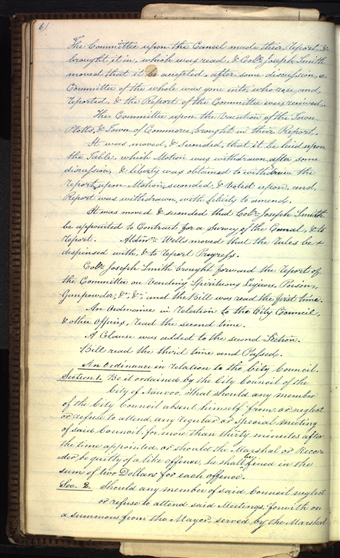 61
The Committee upon the Canal made their Report, &
brought it in, which was read, & Coɫr Joseph Smith
moved that it be accepted, after some discussion, a
Committee of the whole was gone into, who rose, and
reported, & the Report of the Committee was received.
The Committee upon the Vacation of the Town
Platts, & Town of Commerce, brought in their Report.
It was moved, & seconded, that it be laid upon
the Table, which Motion was withdrawn, after some
discussion, & liberty was obtained to withdraw the
report, upon Motion, seconded, & voted upon, and,
Report was withdrawn, with liberty to amend.
It was moved & seconded that Coɫr Joseph Smith
be appointed to Contract for a Survey of the Canal, & to
report. Aldn. Wells moved that the rules be
dispensed with, & to report Progress.
Coɫr Joseph Smith brought forward the report of
the Committee on Vending Spirituous Liquors, Poison,
Gunpowder, &c, &c, and the Bill was read the first time.
An Ordinance in relation to the City Council
& other Officers, read the second time.
A Clause was added to the second Section.
Bill read the third time and Passed.
An Ordinance in relation to the City Council.
Section 1. Be it ordained by the City Council of the
City of Nauvoo, That should any member
of the City Council absent himself from, or neglect
or refuse to attend, any regular or special meeting
of said Council, for more than thirty minutes after
the time appointed, or should the Marshal or Recor-
der be guilty of a like offence, he shall be fined in the
sum of two Dollars for each offence.
Sec. 2. Should any member of said Council neglect
or refuse to attend said Meetings, forthwith on
a summons from the Mayor, served by the Marshal